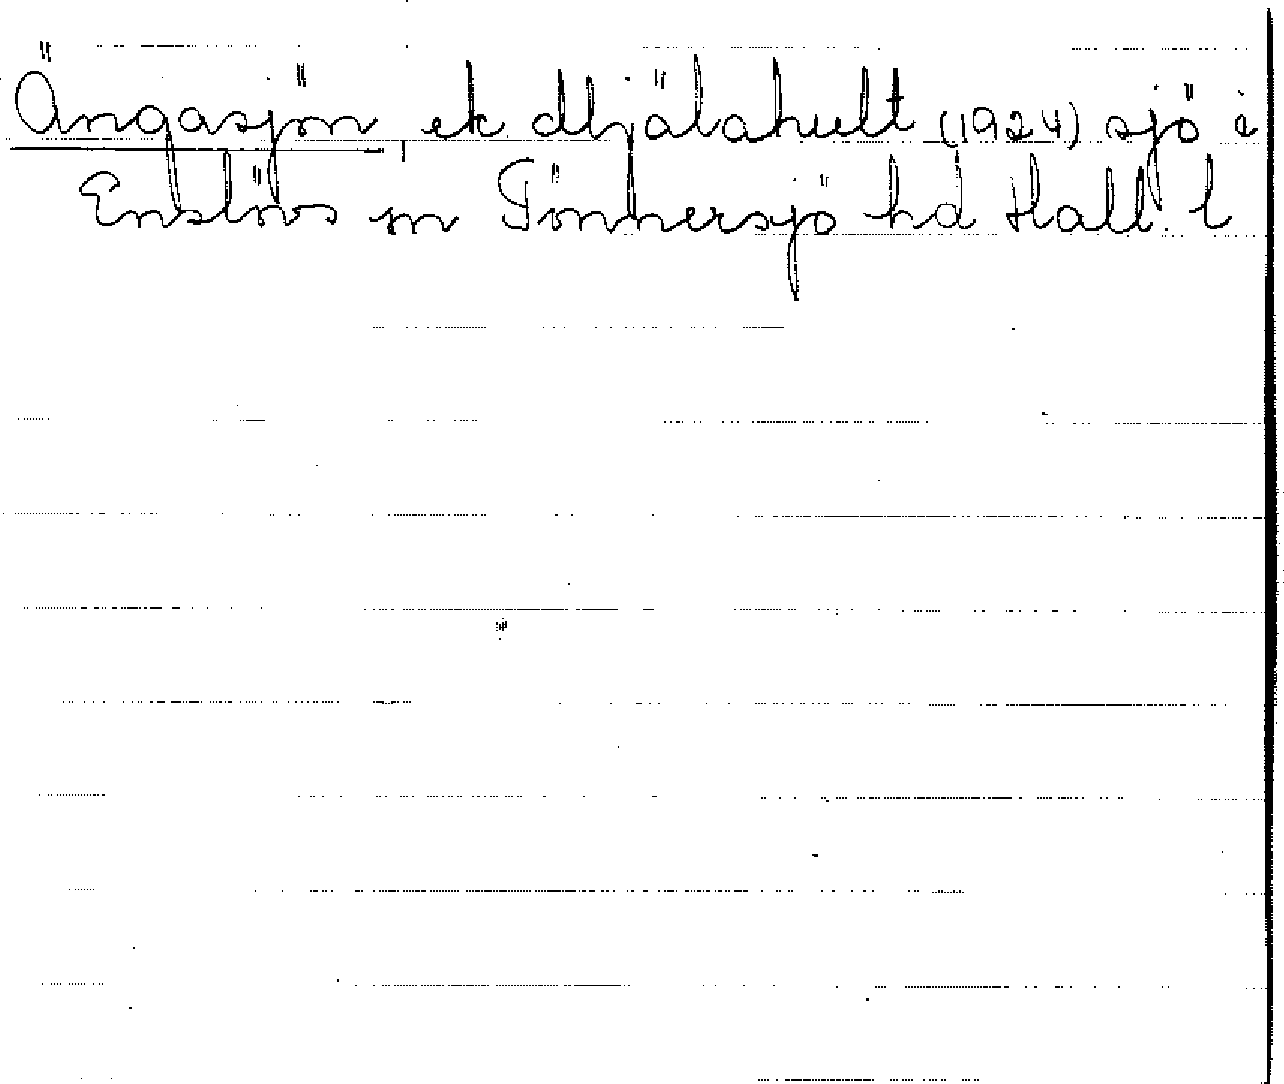 Ängasjön ek Hjälahult (1924) sjö i
Enslövs sn Tönnersjö hd Hall. l